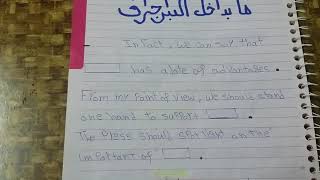 ما بداخل البرجراف
In fact, we can say that
has a lote of advantages.
From my Point of view, we should stand
one hand to support
The Press should spot light on the
important of